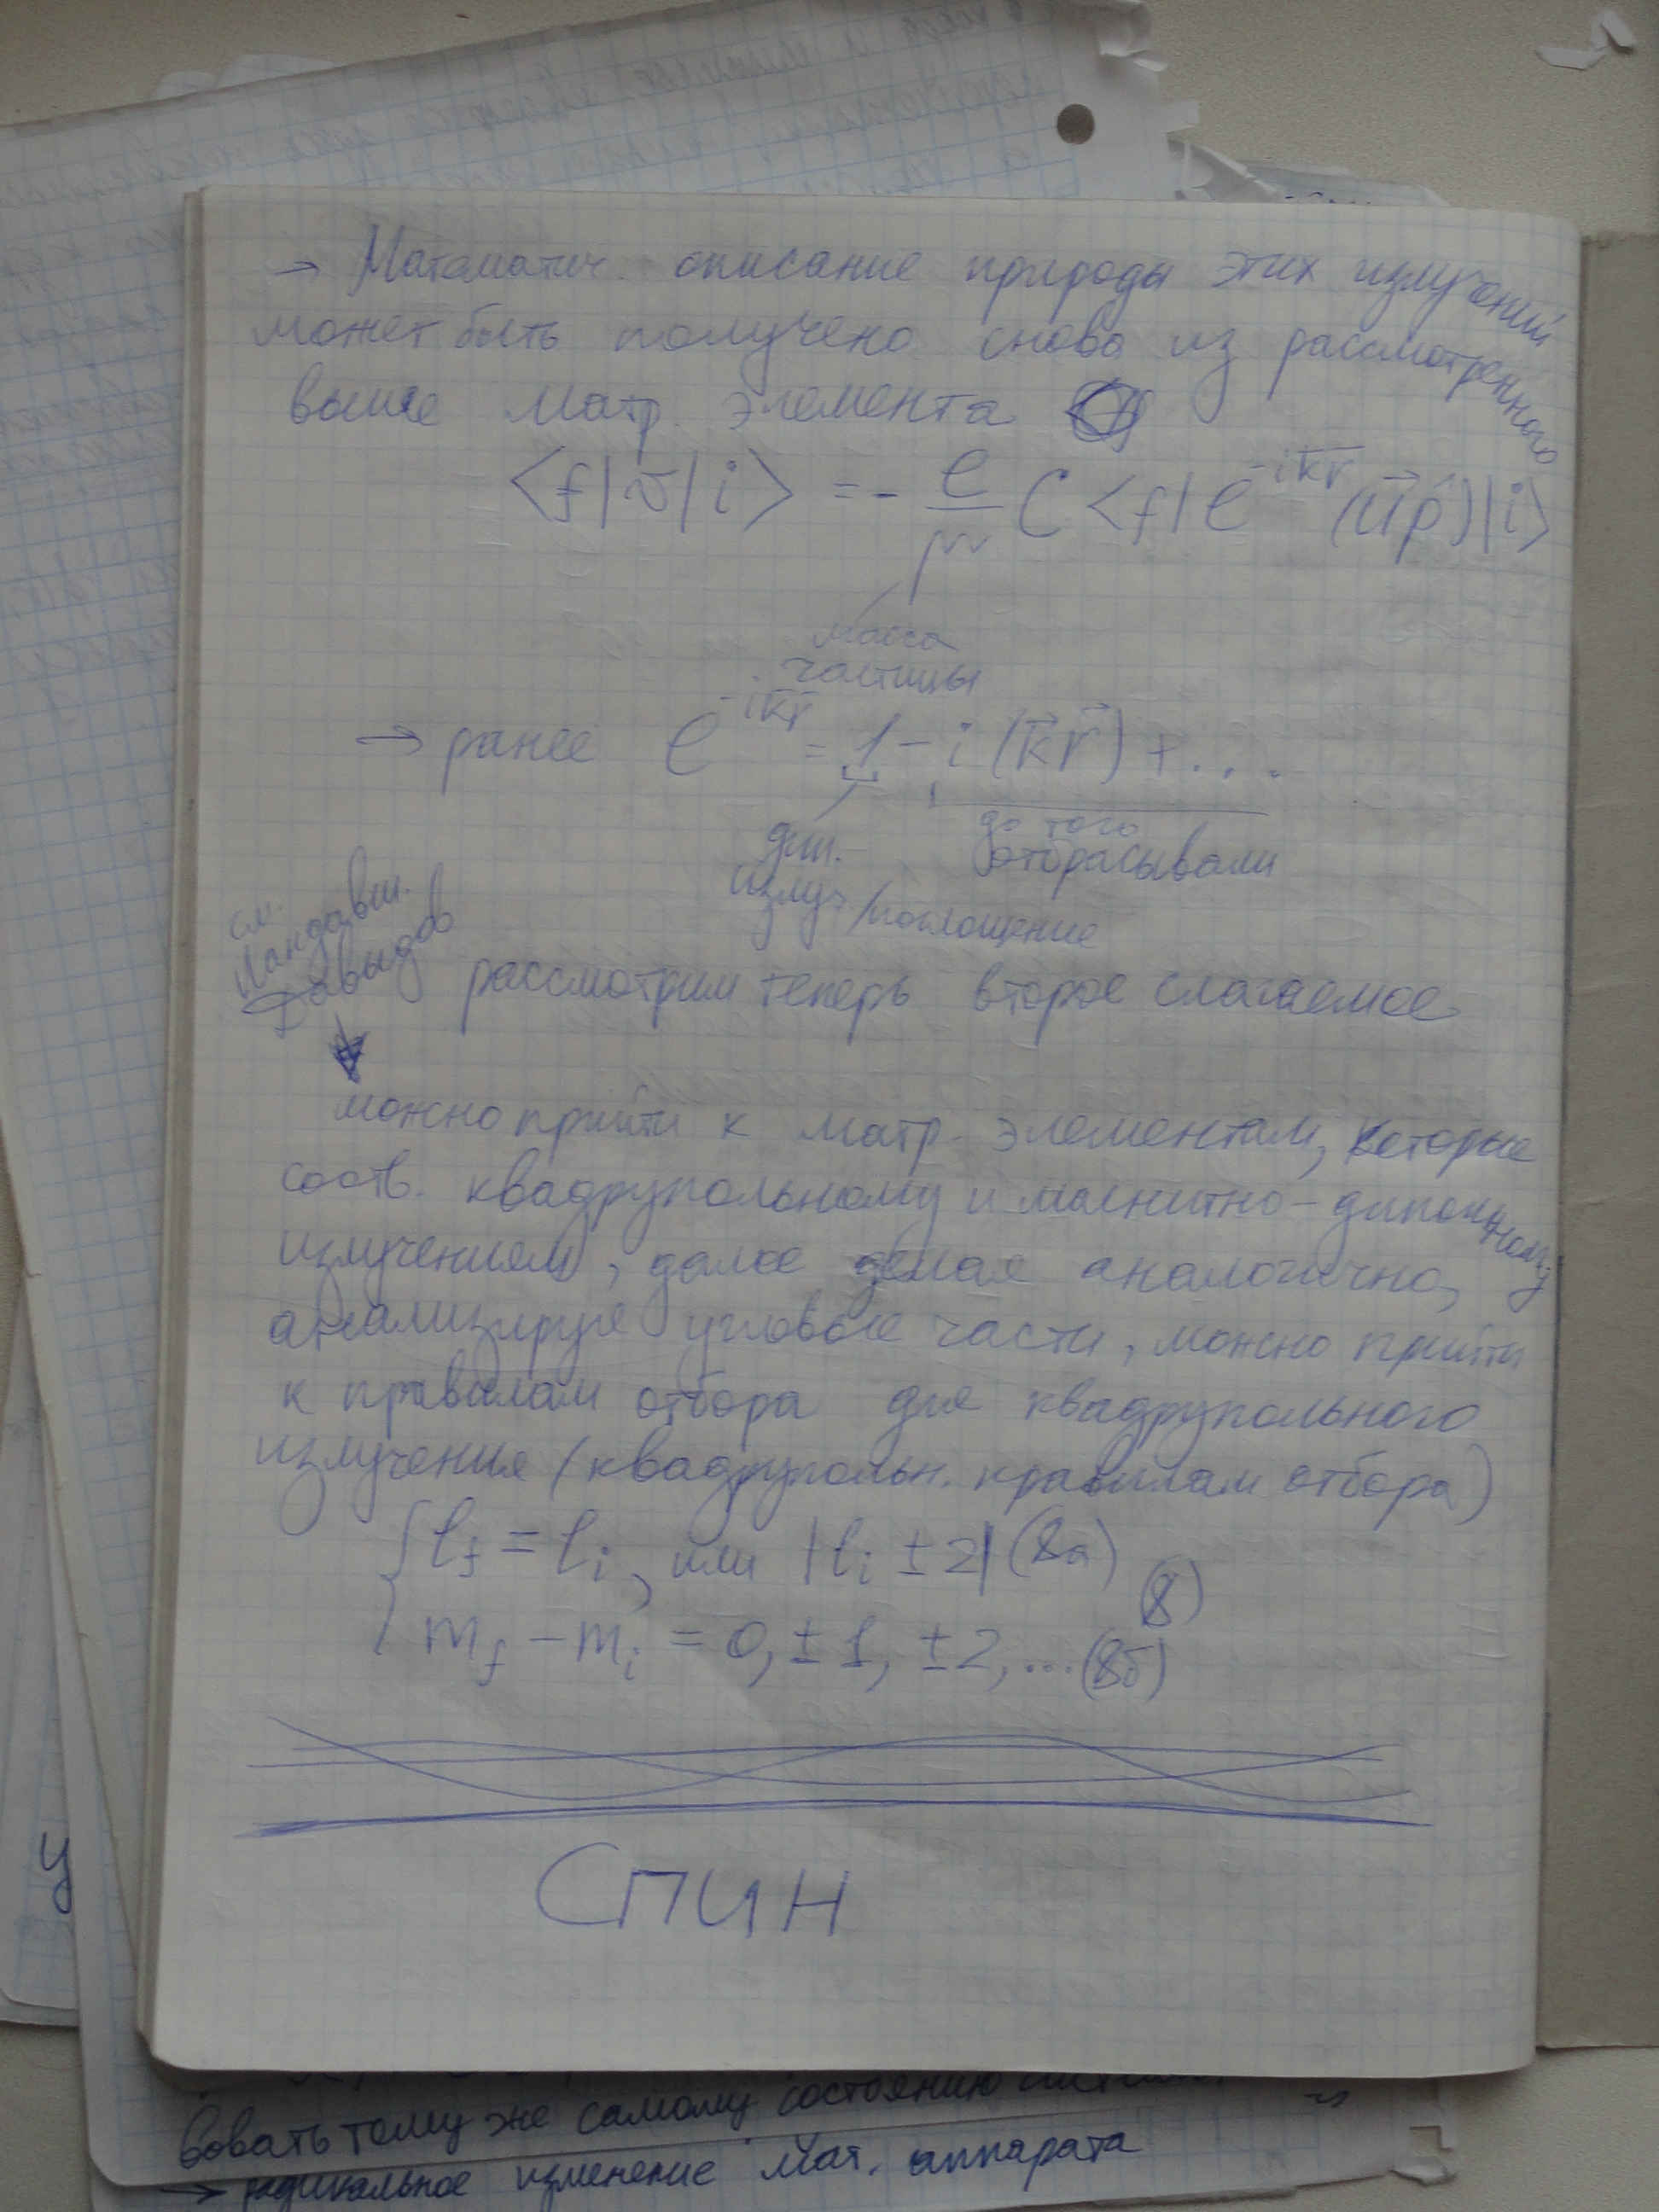 → Математич. описание природы этих излучений
может быть получено снова из рассмотренного
выше матр. элемента
<f|v|i> = - e/μ C <f| e^{-ikr} (u p) |i>
масса
частицы
→ ранее e^{-ikr} = 1 - i (kr) + ...
до того
дип. отбрасывали
излуч/поглощение
см.
Ландавш.
Давыдов
рассмотрим теперь второе слагаемое
можно прийти к матр. элементам, которые
соотв. квадрупольному и магнитно-дипольному
излучениям, далее делая аналогично,
анализируя угловые части, можно прийти
к правилам отбора для квадрупольного
излучения (квадрупольн. правилам отбора)
l_f = l_i, или |l_i ± 2| (8а)
(8)
m_f - m_i = 0, ±1, ±2, ... (8б)
Спин
вовать тому же самому состоянию
→ радикальное изменение мат. аппарата